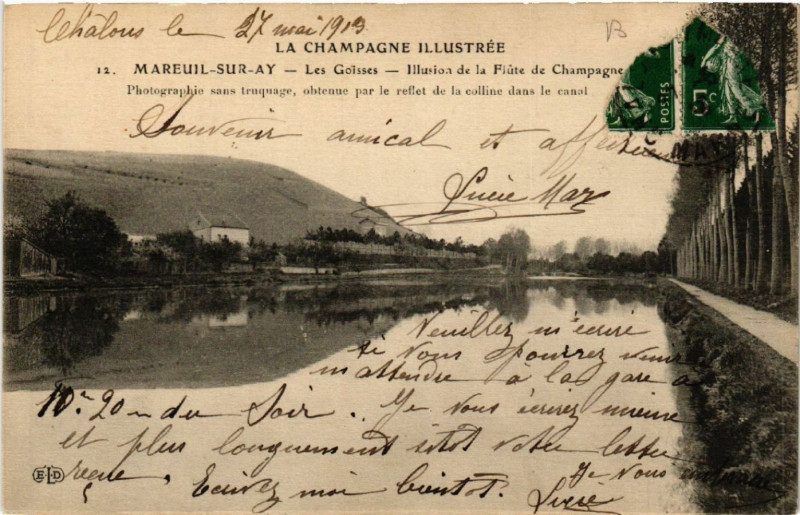 Châlons le 27 mai 1913
LA CHAMPAGNE ILLUSTRÉE
12. MAREUIL-SUR-AY — Les Goïsses — Illusion de la Flûte de Champagne
Photographie sans truquage, obtenue par le reflet de la colline dans le canal
POSTES
5c
Souvenir amical et
Lucie
Veuillez m'écrire
si vous pourrez venir
m'attendre à la gare a
10h 20m du Soir. Je vous écrirez mieux
et plus longuement sitôt votre lettre
reçue. Ecrivez moi bientôt. Je vous
Lucie
ELD